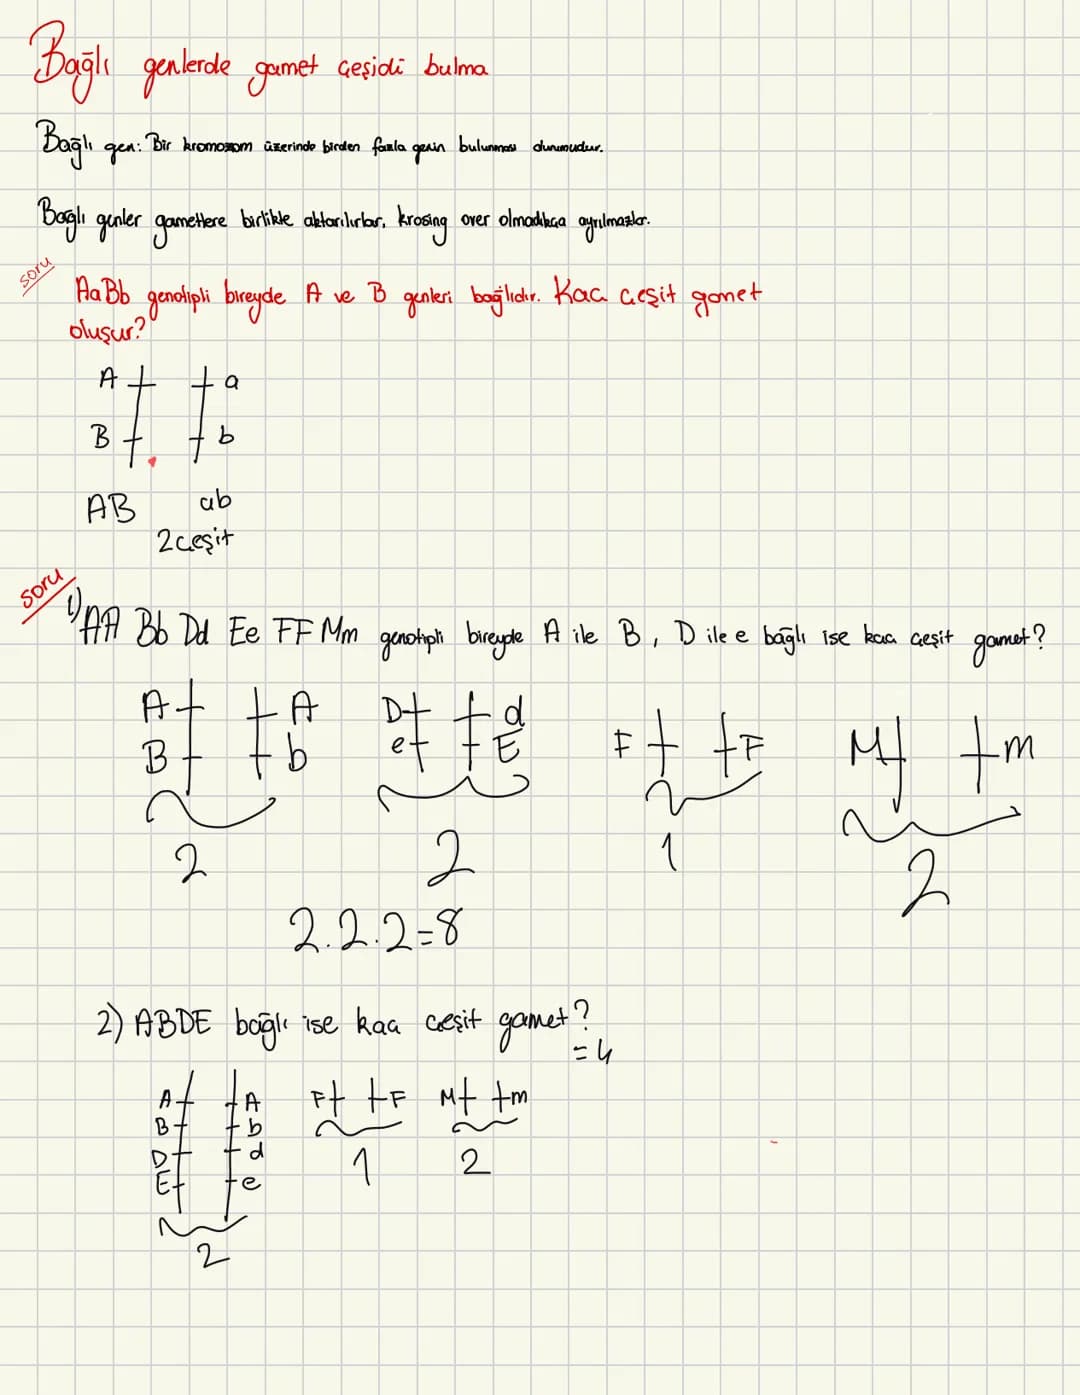 Bağlı genlerde gamet çeşidi bulma
Bağlı gen: Bir kromozom üzerinde birden fazla genin bulunması durumudur.
Bağlı genler gametlere birlikte aktarılırlar, krosing over olmadıkça ayrılmazlar.
soru
AaBb genotipli bireyde A ve B genleri bağlıdır. Kaç çeşit gamet
oluşur?
A a
B b
AB ab
2 çeşit
soru
1) AA Bb Dd Ee FF Mm genotipli bireyde A ile B, D ile e bağlı ise kaç çeşit gamet?
A A D d
B b e E F F M m
2 2 1 2
2.2.2=8
2) ABDE bağlı ise kaç çeşit gamet?
=4
A A F F M m
B b
D d 1 2
E e
2